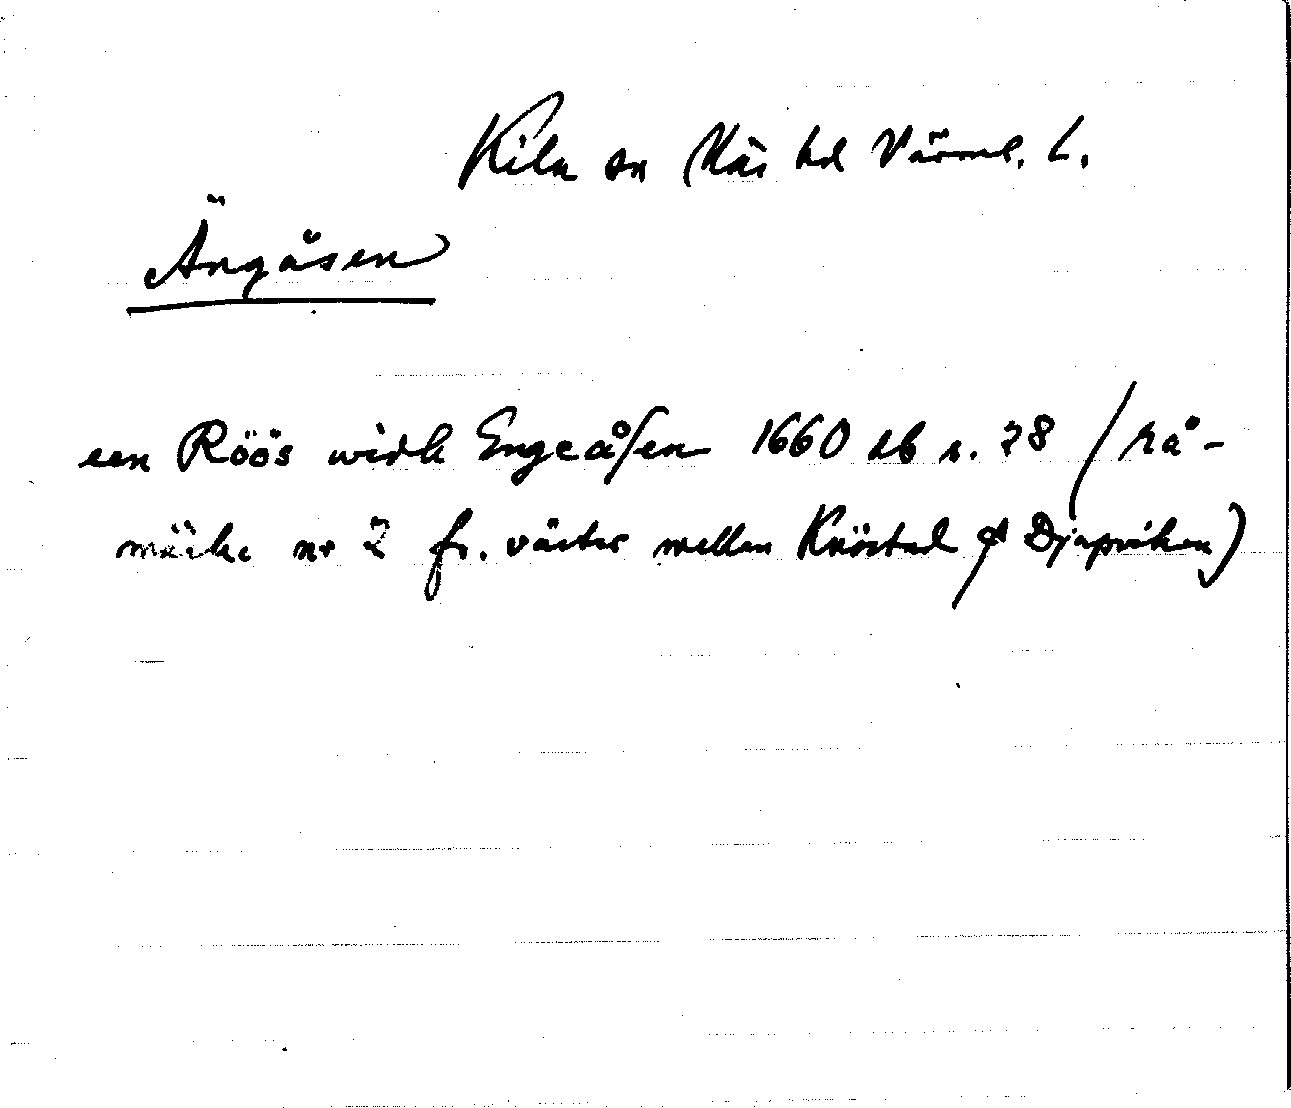 Kila sn Näs hd Värml. l.
Ängåsen
een Röös widh Engeåsen 1660 db s. 28 (rå-
märke nr 2 fr. väster mellan Knöstad & Djupviken)